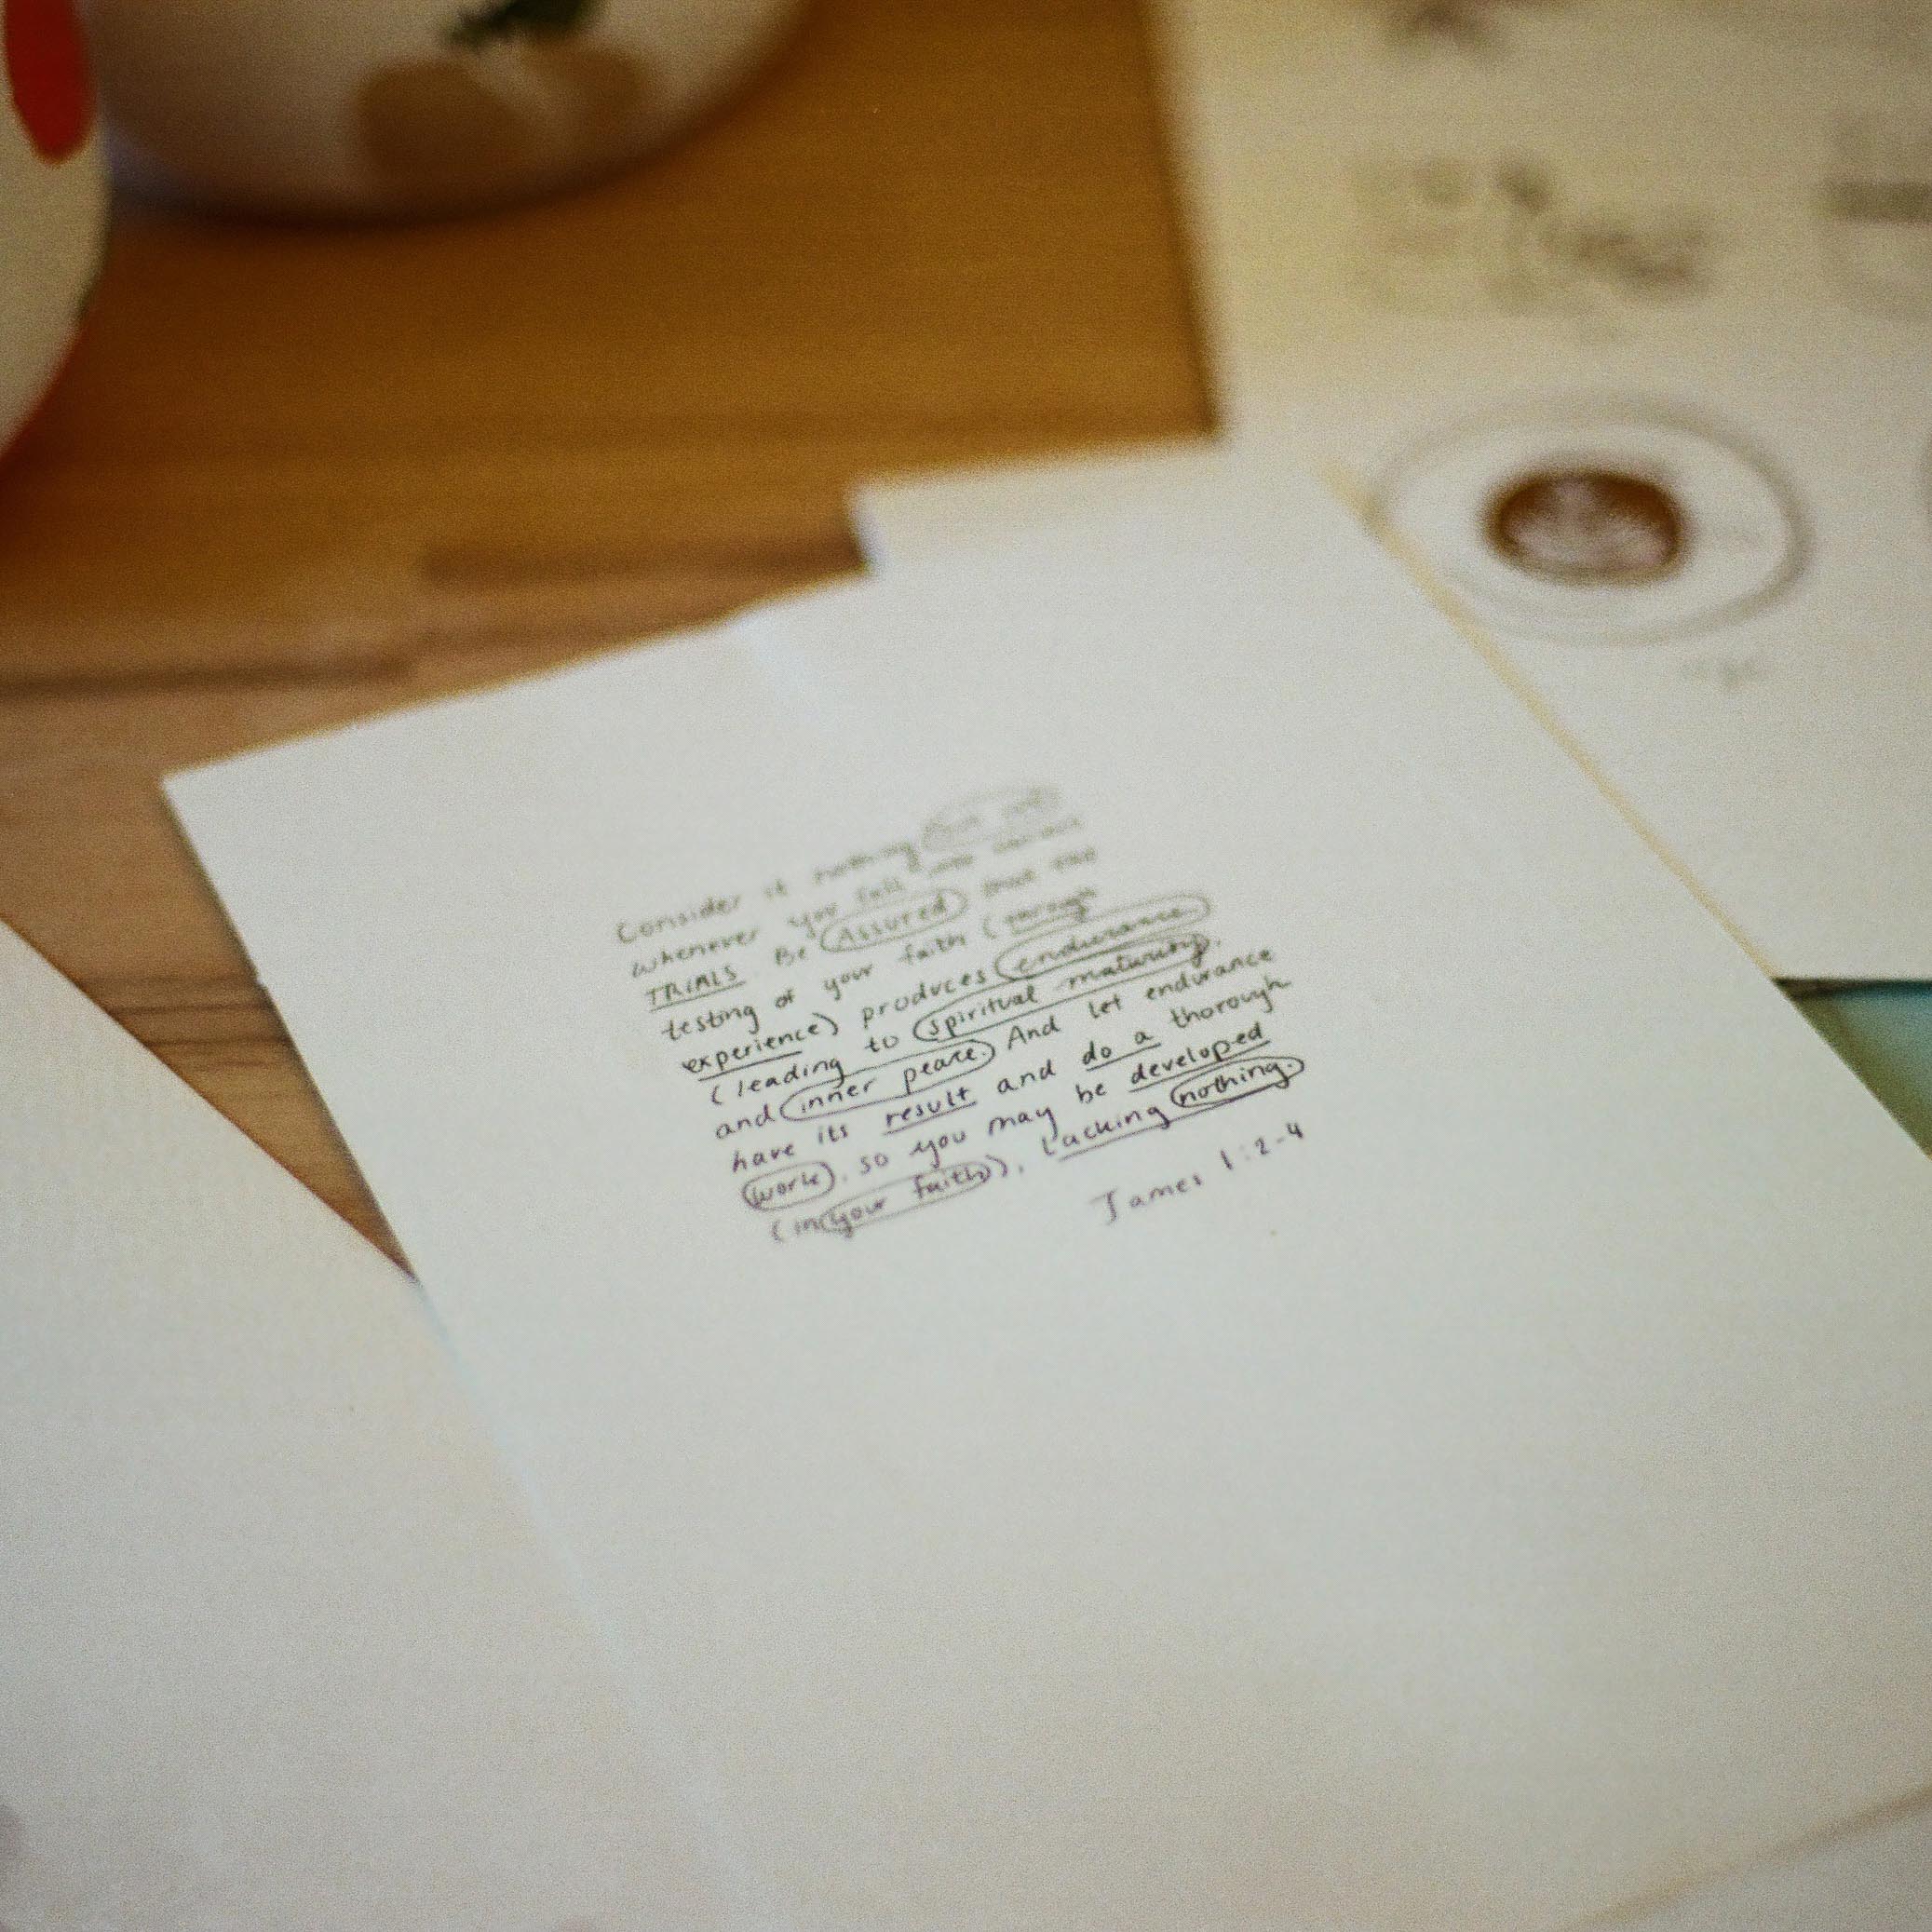 Consider it nothing
whenever you fall into various
TRIALS. Be Assured that the
testing of your faith (through
experience) produces endurance
(leading to spiritual maturity.
and inner peace.) And let endurance
have its result and do a thorough
work), so you may be developed
(in your faith)), Lacking nothing.
James 1:2-4